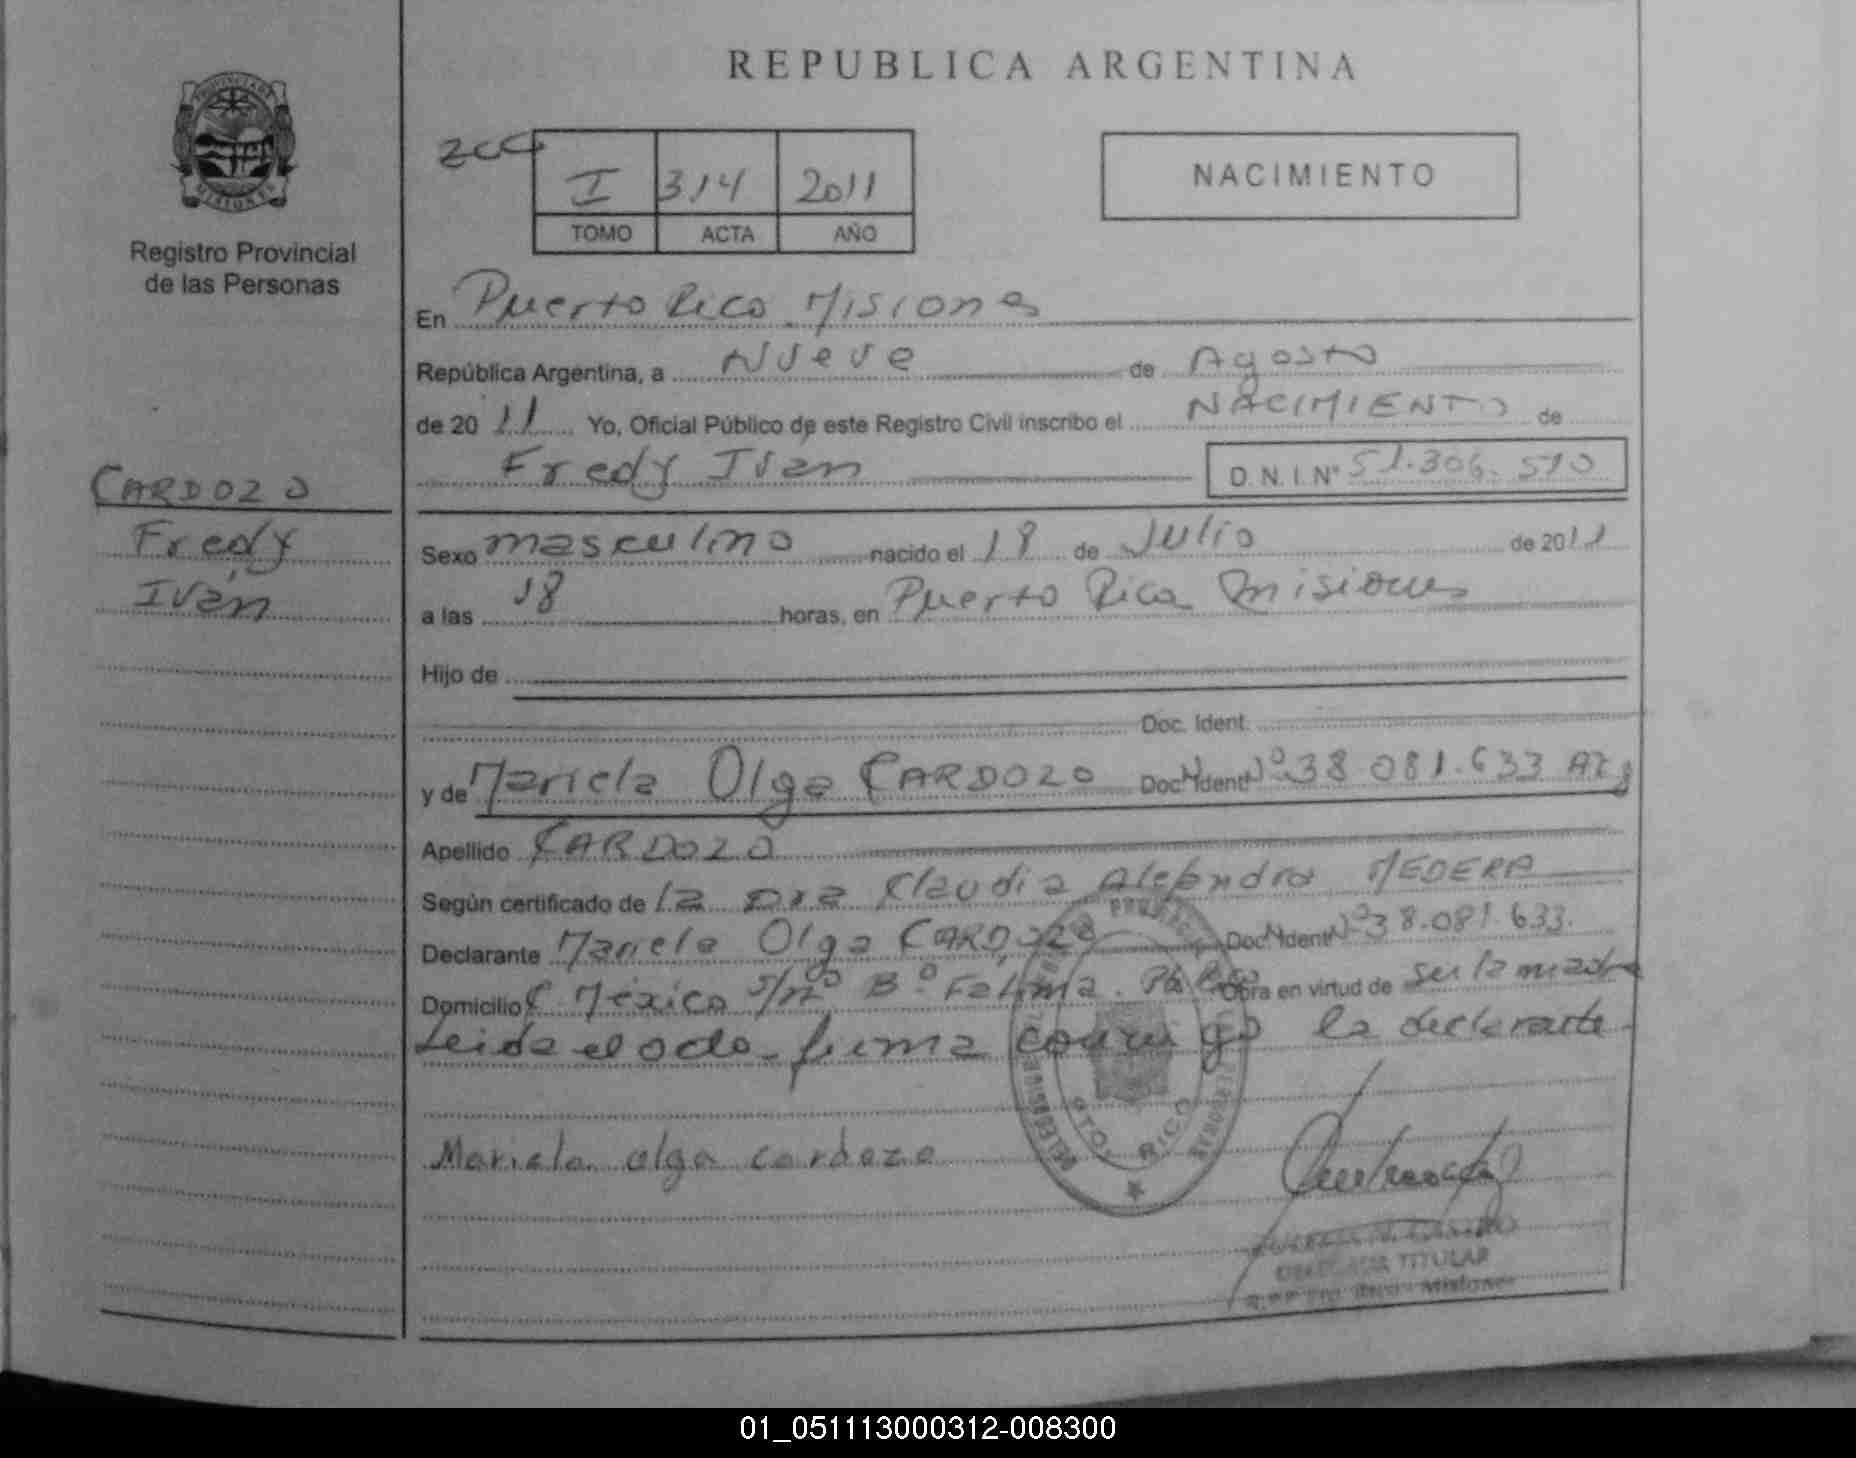 REPUBLICA ARGENTINA
PROVINCIA DE
MISIONES
Registro Provincial
de las Personas
I 314 2011
TOMO ACTA AÑO
NACIMIENTO
En Puerto Rico Misiones
República Argentina, a Nueve de Agosto
de 2011 Yo, Oficial Público de este Registro Civil inscribo el NACIMIENTO de
Fredy Ivan D.N.I.Nº 51.306.510
CARDOZO
Fredy
Iván
Sexo masculino nacido el 18 de Julio de 2011
a las 18 horas, en Puerto Rico Misiones
Hijo de
Doc. Ident.
y de Mariela Olga CARDOZO Doc. Ident. Nº 38 081.633 Arg
Apellido CARDOZO
Según certificado de la Dra Claudia Alejandra MEDERA
Declarante Mariela Olga CARDOZO Doc. Ident. Nº 38.081.633.
Domicilio C. México s/nº Bº Fatima. Pto Rico Obra en virtud de ser la madre
Leida el acta firma conmigo la declarante
PTO. RICO
Mariela olga cardozo
TITULAR
Misiones
01_051113000312-008300